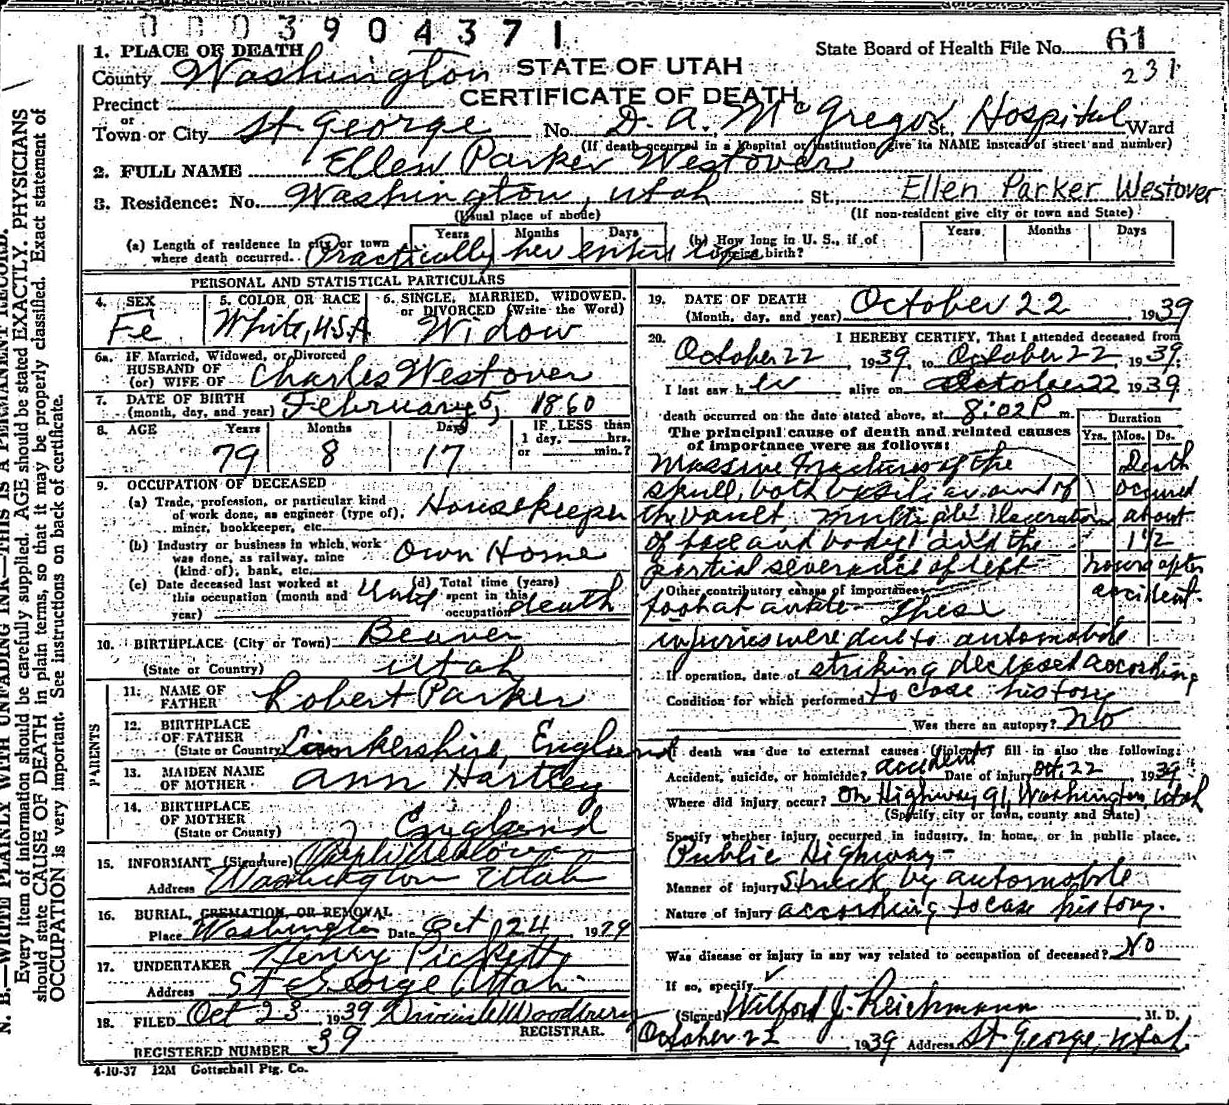 0003904371
1. PLACE OF DEATH
State Board of Health File No. 61
231
County Washington
STATE OF UTAH
CERTIFICATE OF DEATH
Precinct
or
Town or City St George No. D. A. McGregor St. Hospital Ward
(If death occurred in a hospital or institution, give its NAME instead of street and number)
2. FULL NAME Ellen Parker Westover
Ellen Parker Westover
3. Residence: No. Washington, Utah St.,
(Usual place of abode)
(If non-resident give city or town and State)
(a) Length of residence in city or town where death occurred. Years Months Days Practically her entire life
(b) How long in U. S., if of foreign birth? Years Months Days
PERSONAL AND STATISTICAL PARTICULARS
4. SEX Fe
5. COLOR OR RACE White, U.S.A
6. SINGLE, MARRIED, WIDOWED, or DIVORCED (Write the Word) Widow
6a. IF Married, Widowed, or Divorced
HUSBAND OF
(or) WIFE OF Charles Westover
7. DATE OF BIRTH
(month, day, and year) February 5, 1860
8. AGE Years 79 Months 8 Days 17 IF LESS than 1 day, hrs. or min.?
9. OCCUPATION OF DECEASED
(a) Trade, profession, or particular kind
of work done, as engineer (type of),
miner, bookkeeper, etc. Housekeeper
(b) Industry or business in which work
was done, as railway, mine
(kind of), bank, etc. Own Home
(c) Date deceased last worked at
this occupation (month and
year) Until
(d) Total time (years)
spent in this
occupation death
10. BIRTHPLACE (City or Town) Beaver
(State or Country) Utah
PARENTS
11. NAME OF
FATHER Robert Parker
12. BIRTHPLACE
OF FATHER
(State or Country) England
13. MAIDEN NAME
OF MOTHER Ann Hartley
14. BIRTHPLACE
OF MOTHER
(State or County) England
15. INFORMANT (Signature)
Address Washington Utah
16. BURIAL, CREMATION, OR REMOVAL
Place Washington Date Oct 24 1939
17. UNDERTAKER Henry Pickett
Address St George Utah
18. FILED Oct 23, 1939 Woodbury
REGISTRAR.
REGISTERED NUMBER 39
4-10-37 12M Gottschall Ptg. Co.
19. DATE OF DEATH
(Month, day, and year) October 22 1939
20. I HEREBY CERTIFY, That I attended deceased from
October 22, 1939, to October 22, 1939.
I last saw her alive on October 22 1939
death occurred on the date stated above, at 8:02 P m.
The principal cause of death and related causes
of importance were as follows:
Duration
Yrs. Mos. Ds.
Massive fractures of the
skull, both basiliar and of
the vault, multiple laceration
of face and body and the
partial severance of left
Death
occured
about
1 1/2
hours after
accident.
Other contributory causes of importance:
foot at ankle - These
injuries were due to automobile
If operation, date of striking deceased according
Condition for which performed to case history
Was there an autopsy? No
If death was due to external causes (violence) fill in also the following:
Accident, suicide, or homicide? accident Date of injury Oct. 22 1939
Where did injury occur? On Highway 91, Washington Utah
(Specify city or town, county and State)
Specify whether injury occurred in industry, in home, or in public place.
Public Highway -
Manner of injury Struck by automobile
Nature of injury according to case history.
Was disease or injury in any way related to occupation of deceased? No
If so, specify
(Signed) Wilford J. Reichmann M. D.
October 22 1939 Address St George, Utah.
N. B.—WRITE PLAINLY WITH UNFADING INK—THIS IS A PERMANENT RECORD.
Every item of information should be carefully supplied. AGE should be stated EXACTLY. PHYSICIANS
should state CAUSE OF DEATH in plain terms, so that it may be properly classified. Exact statement of
OCCUPATION is very important. See instructions on back of certificate.